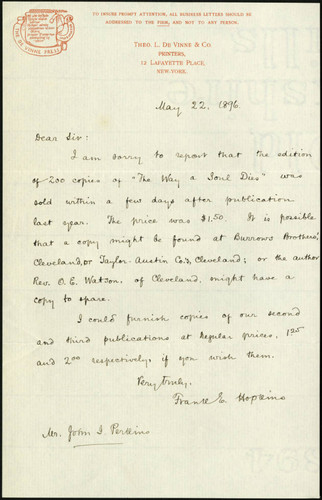 TO INSURE PROMPT ATTENTION, ALL BUSINESS LETTERS SHOULD BE
ADDRESSED TO THE FIRM, AND NOT TO ANY PERSON.
THE DE VINNE PRESS
THEO. L. DE VINNE & CO.
PRINTERS,
12 LAFAYETTE PLACE,
NEW-YORK.
May 22, 1896.
Dear Sir:
I am sorry to report that the edition
of 200 copies of "The Way a Soul Dies" was
sold within a few days after publication
last year. The price was $1.50. It is possible
that a copy might be found at Burrows Brothers,
Cleveland, or Taylor-Austin Co.s, Cleveland; or the author
Rev. O. E. Watson, of Cleveland, might have a
copy to spare.
I could furnish copies of our second
and third publications at regular prices, 1 25
and 2 00 respectively, if you wish them.
Very truly,
Frank E. Hopkins
Mr. John I. Perkins